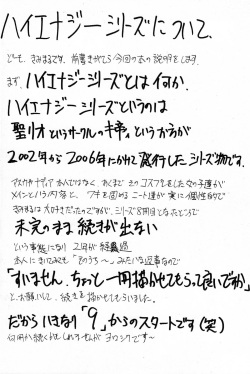 ハイエナジーシリーズについて。
どーも、きみまるです。前書きがてら今回の本の説明をします。
まず、ハイエナジーシリーズとは何か。
ハイエナジーシリーズというのは
聖リオというサークルの という方が
2002年から2006年にかけて発行したシリーズ物です。
メインという内容と、ワキを固めるニート達が実に個性的で
きみまるは大好きだったのですが、シリーズ8冊目となったところで
未完のまま続きが出ない
という事態になり2年が経過
本人にきいてみても「そのうち〜」みたいな返事なので
「すいません、ちょっと一冊描かせてもらって良いですか」
と、お願いして、続きを描かせてもらいました。
だからいきなり「9」からのスタートです(笑)
何冊か続くかもしれませんがヨロシクです〜